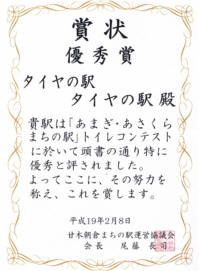 賞状
優秀賞
タイヤの駅
タイヤの駅 殿
貴駅は「あまぎ・あさくら
まちの駅」トイレコンテスト
に於いて頭書の通り特に
優秀と評されました。
よってここに、その努力を
称え、これを賞します。
平成19年2月8日
甘木朝倉まちの駅運営協議会
会長 尾藤長司